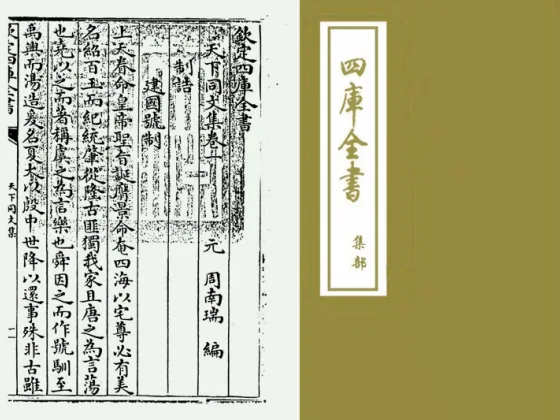 四庫全書
集部
欽定四庫全書
天下同文集卷一 元 周南瑞 編
制誥
建國號制
上天眷命皇帝聖旨誕膺景命奄四海以宅尊必有美
名紹百王而紀統肇從隆古匪獨我家且唐之為言蕩
也堯以之而著稱虞之為言樂也舜因之而作號馴至
禹興而湯造名夏大以殷中世降以還事殊非古雖
欽定四庫全書
天下同文集